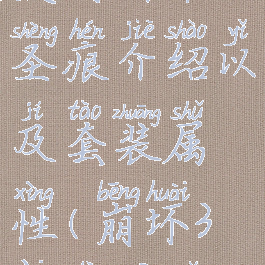 shèng hén jiè shào yǐ
圣痕介绍以
jí tào zhuāng shǔ
及套装属
xìng bēng huài
性(崩坏3